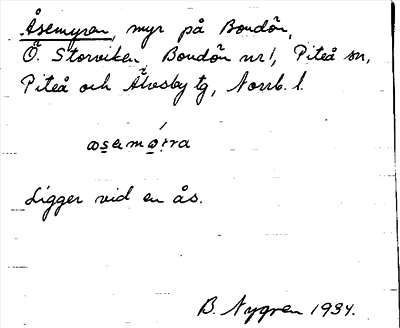 Åsemyren, myr på Bondön,
Ö. Storviken, Bondön nr 1, Piteå sn,
Piteå och Älvsby tg, Norrb. l.
Ligger vid en ås.
B. Nygren 1934.